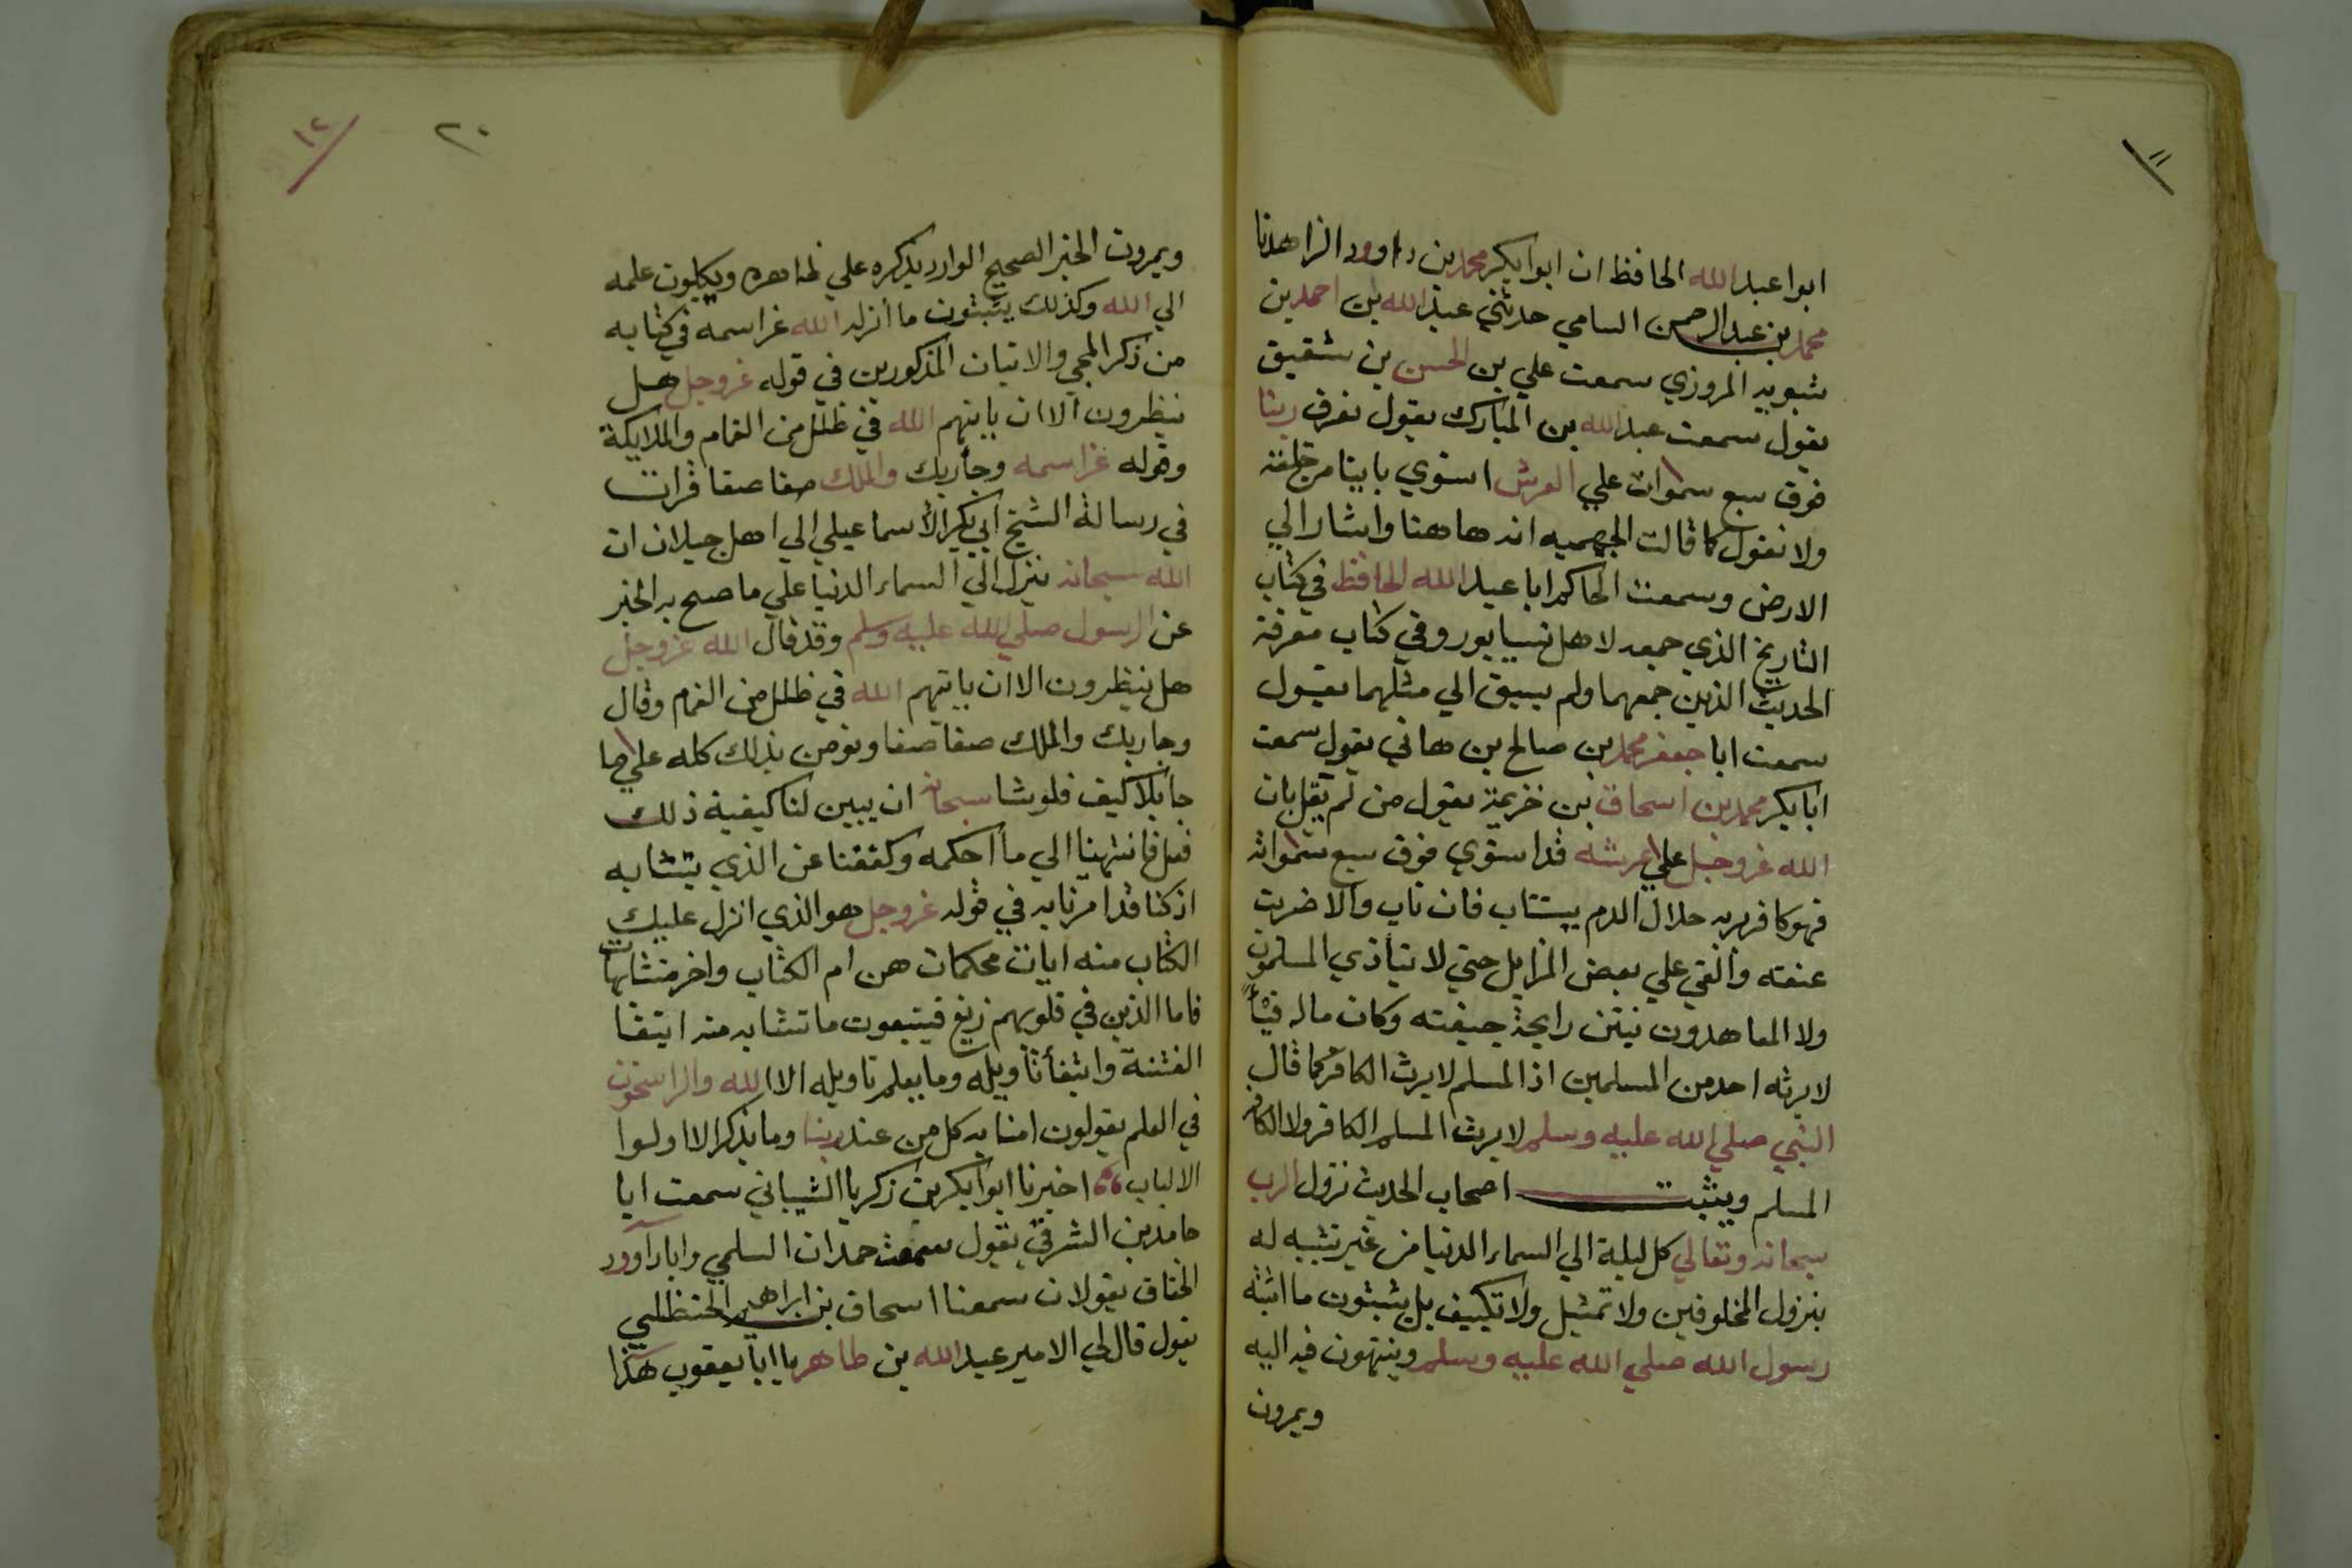 ١١
ابوا عبد الله الحافظ ان ابوا بكر محمد بن داوود الزاهد نا
محمد بن عبد الرحمن السامي حدثني عبد الله بن احمد بن
شبويه المروزي سمعت علي بن الحسن بن شقيق
يقول سمعت عبد الله بن المبارك يقول نعرف ربنا
فوق سبع سموات علي العرش استوي باينا من خلقه
ولا نقول كما قالت الجهميه انه هاهنا واشار الي
الارض وسمعت الحاكم ابا عبد الله الحافظ في كتاب
التاريخ الذي جمعه لاهل نيسابور وفي كتاب معرفة
الحديث الذين جمعهما ولم يسبق الي مثلهما يقول
سمعت ابا جعفر محمد بن صالح بن هاني يقول سمعت
ابا بكر محمد بن اسحاق بن خزيمة يقول من لم يقل بان
الله عز وجل علي عرشه قد استوي فوق سبع سمواته
فهو كافر بربه حلال الدم يستتاب فان تاب والا ضربت
عنقه والقي علي بعض المزابل حتي لا يتاذي المسلمون
ولا المعاهدون بنتن رايحة جيفته وكان ماله فيأ
لا يرثه احد من المسلمين اذ المسلم لا يرث الكافر كما قال
النبي صلي الله عليه وسلم لا يرث المسلم الكافر ولا الكافر
المسلم ويثبت اصحاب الحديث نزول الرب
سبحانه وتعالي كل ليلة الي السماء الدنيا من غير تشبيه له
بنزول المخلوقين ولا تمثيل ولا تكييف بل يثبتون ما اثبته
رسول الله صلي الله عليه وسلم وينتهون فيه اليه
ويمرون
٢٠
١٢
ويمرون الخبر الصحيح الوارد بذكره علي ظاهره ويكلون علمه
الي الله وكذلك يثبتون ما أنزله الله عز اسمه في كتابه
من ذكر المجي والاتيان المذكورين في قوله عز وجل هل
ينظرون الا ان ياتيهم الله في ظلل من الغمام والملايكة
وقوله عز اسمه وجأ ربك والملك صفا صفا قرات
في رسالة الشيخ ابي بكر الأسماعيلي الي اهل جيلان ان
الله سبحانه ينزل الي السماء الدنيا علي ما صح به الخبر
عن الرسول صلي الله عليه وسلم وقد قال الله عز وجل
هل ينظرون الا ان ياتيهم الله في ظلل من الغمام وقال
وجا ربك والملك صفا صفا ونومن بذلك كله علي ما
جا بلا كيف فلو شا سبحانه ان يبين لنا كيفية ذلك
فعل فانتهينا الي ما أحكمه وكففنا عن الذي يتشابه
اذ كنا قد امرنا به في قوله عز وجل هو الذي انزل عليك
الكتاب منه ايات محكمات هن ام الكتاب واخر متشابهات
فاما الذين في قلوبهم زيغ فيتبعون ما تشابه منه ابتغا
الفتنة وابتغأ تاويله وما يعلم تاويله الا الله والراسخون
في العلم يقولون امنا به كل من عند ربنا وما يذكر الا اولوا
الالباب اخبرنا ابوا بكر بن زكريا الشيباني سمعت ابا
حامد بن الشرقي يقول سمعت حمدان السلمي وابا داوود
الخفاق يقولان سمعنا اسحاق بن ابراهيم الحنظلي
يقول قال لي الامير عبد الله بن طاهر يا ابا يعقوب هذا